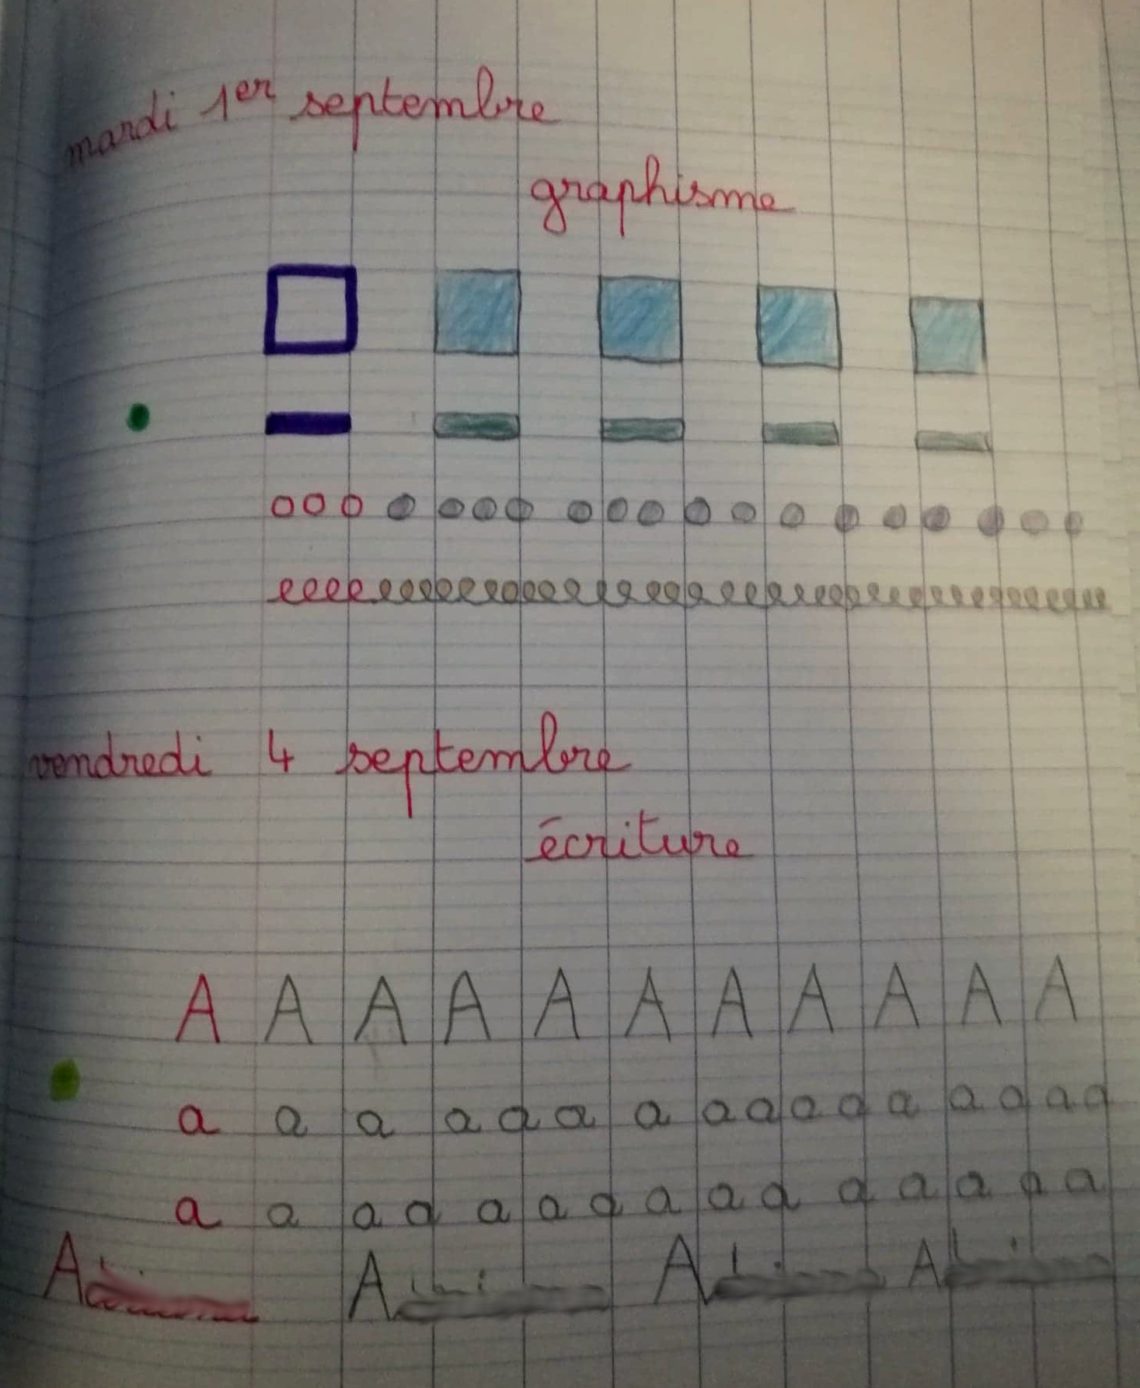 mardi 1er septembre
graphisme
ooooooooooooooooooo
eeeeeeeeeeeeeeeeeeeeeeeeeeeeeeeeeeee
vendredi 4 septembre
écriture
A A A A A A A A A A A
a a a a a a a a a a a a a a a a
a a a a a a a a a a a a a a a